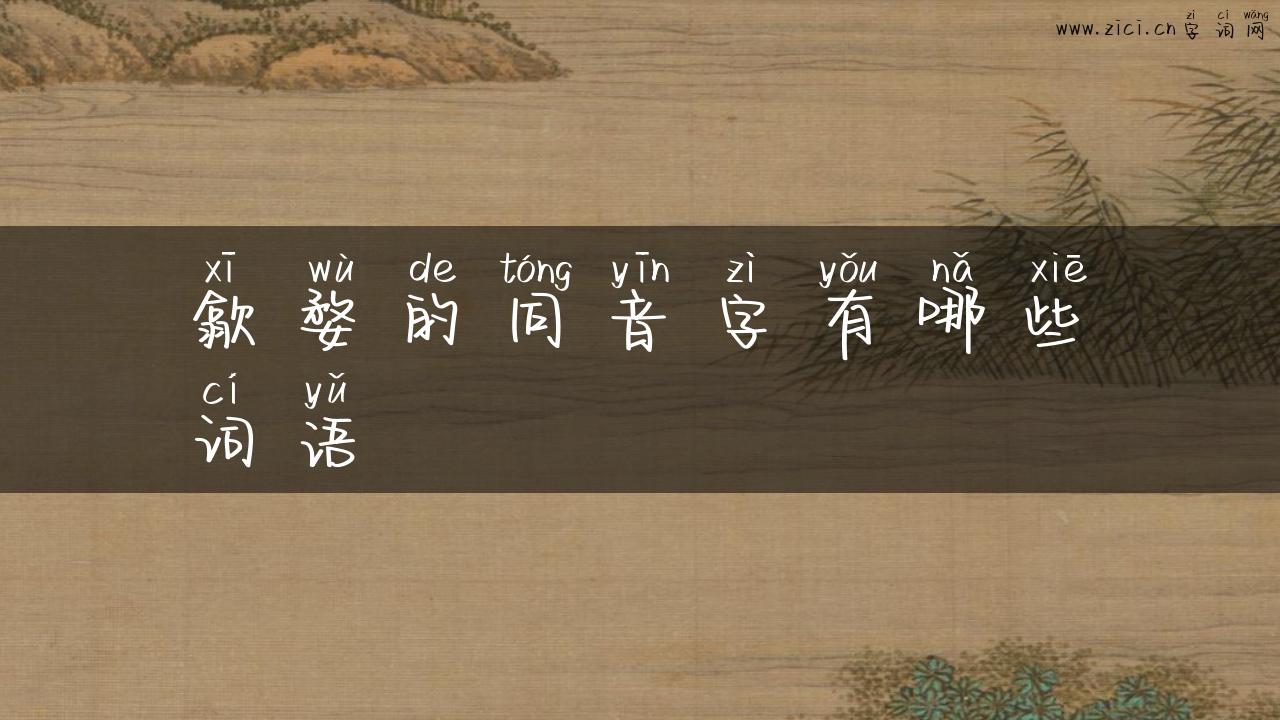 www.zici.cn字词网
zì cí wǎng
xī wù de tóng yīn zì yǒu nǎ xiē
歙婺的同音字有哪些
cí yǔ
词语